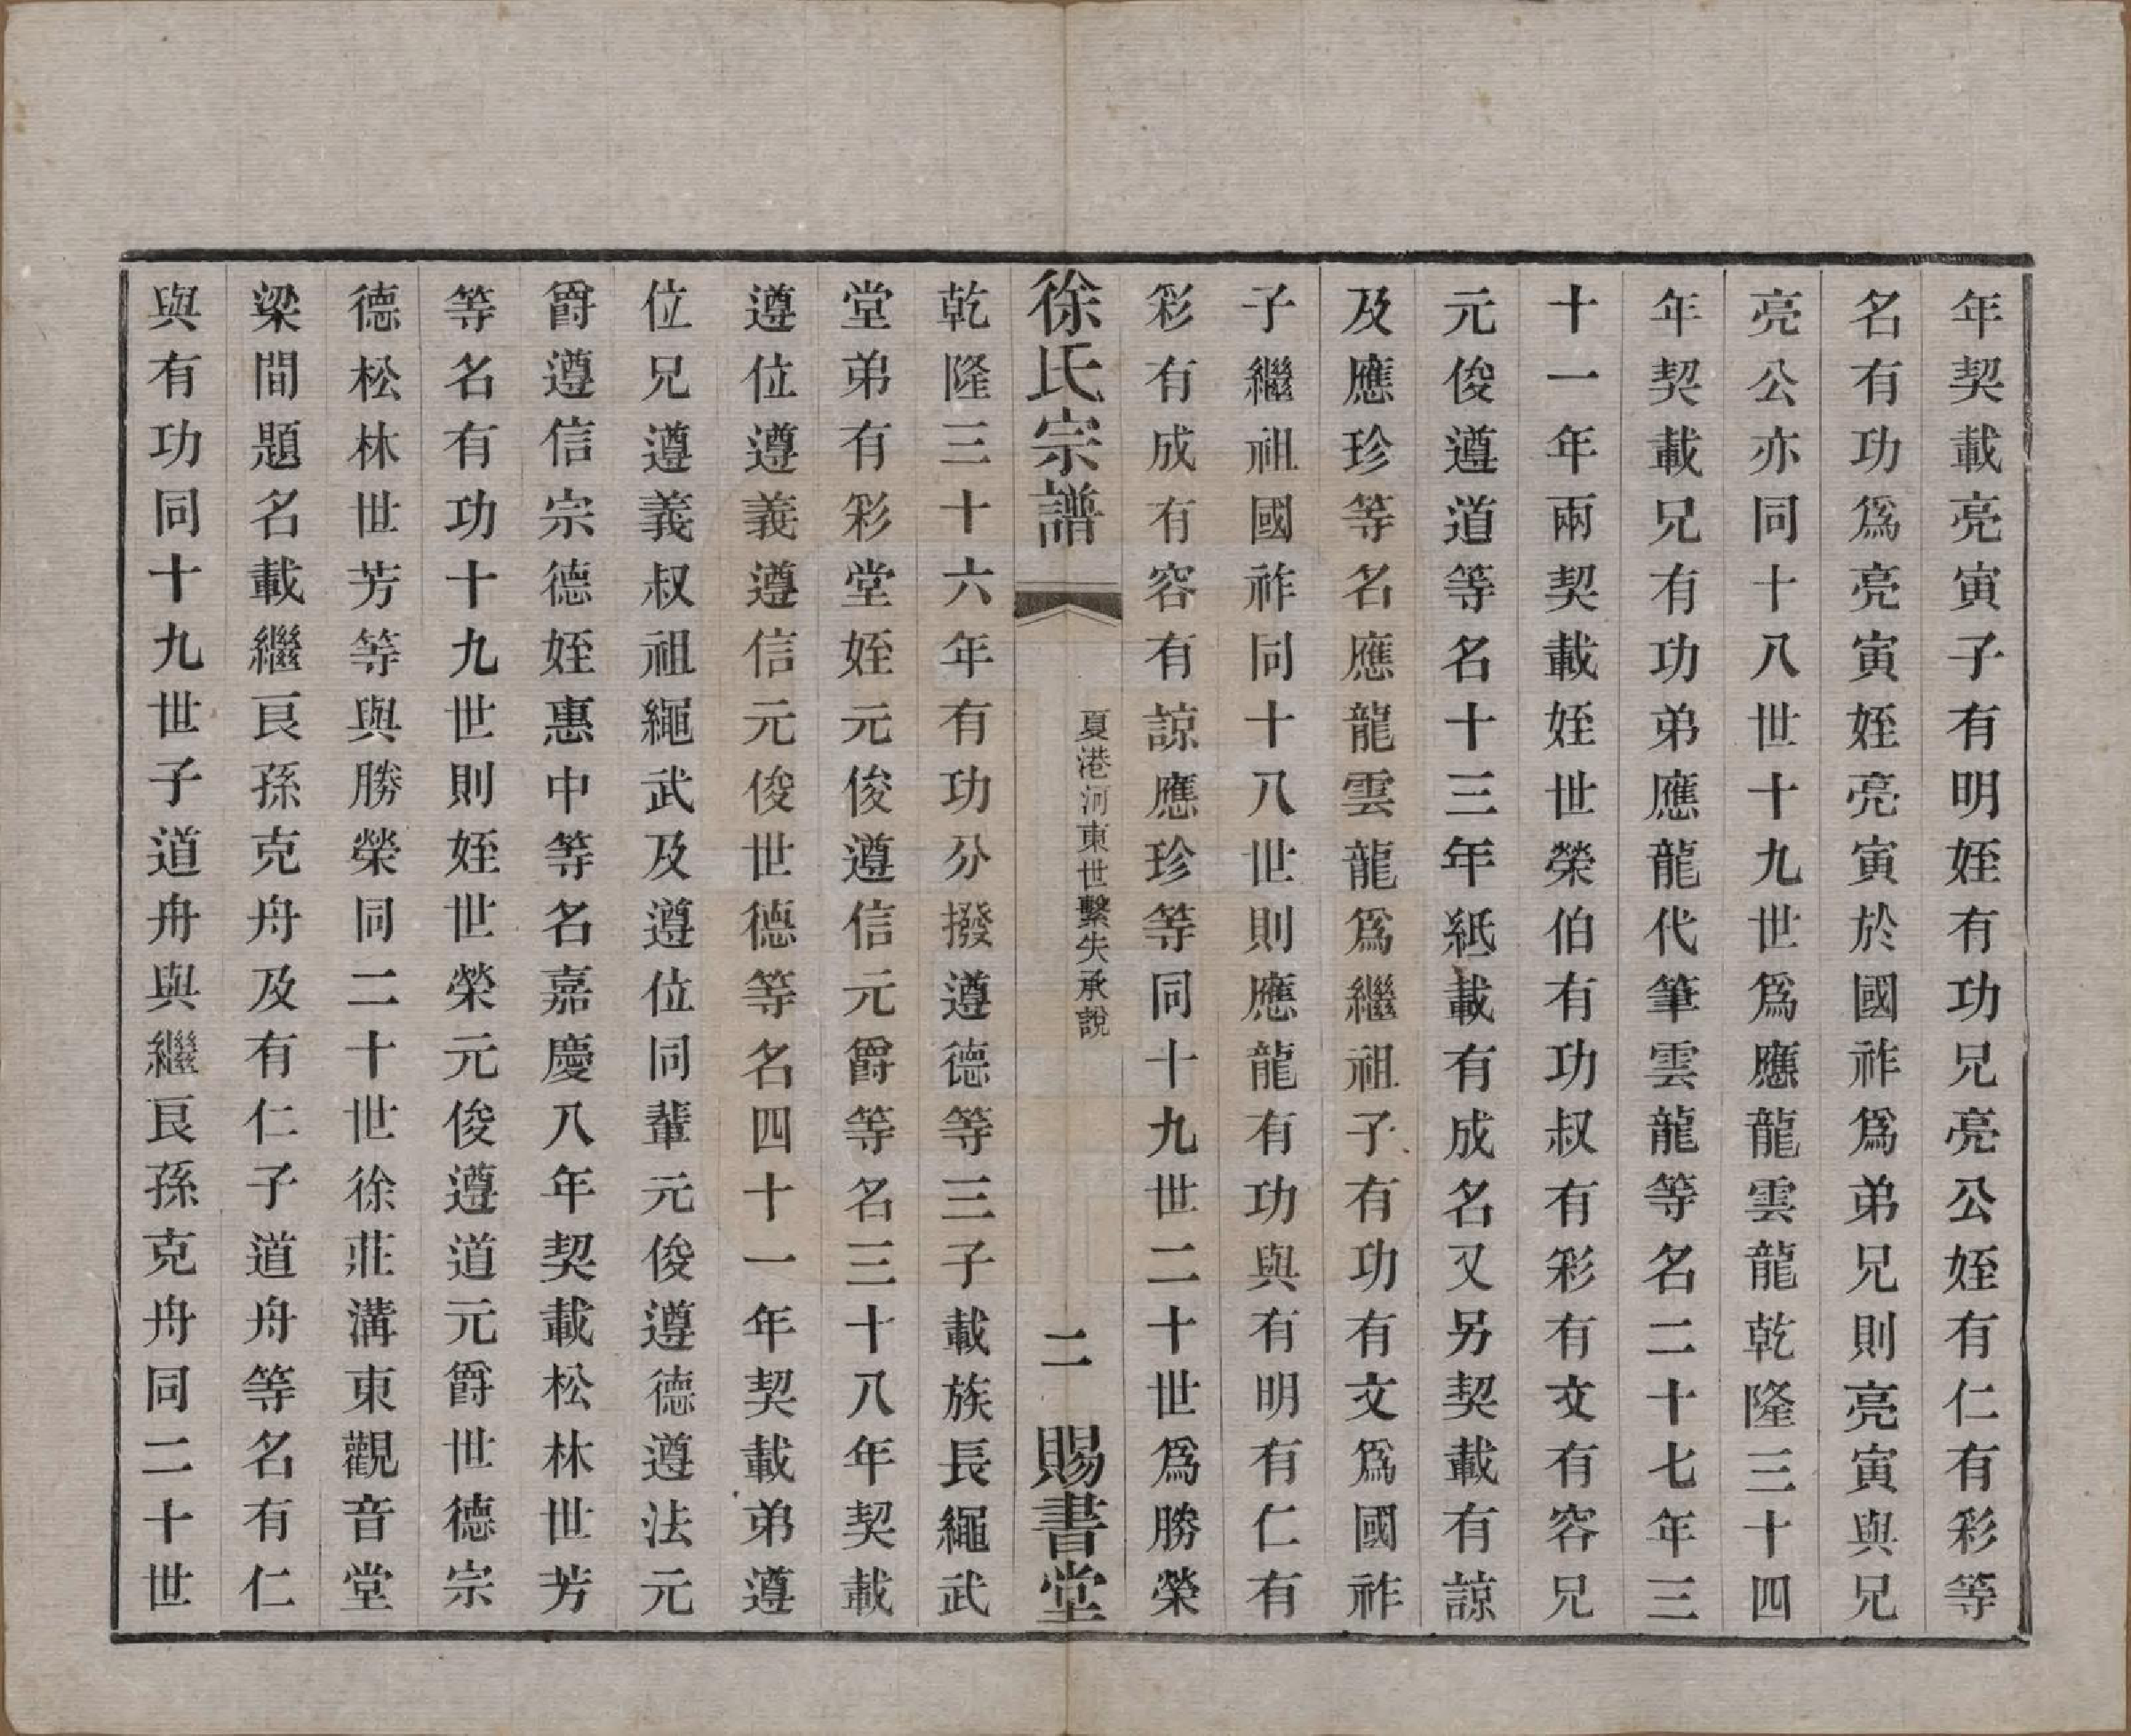 年契載亮寅子有明姪有功兄亮公姪有仁有彩等
名有功爲亮寅姪亮寅於國祚爲弟兄則亮寅與兄
亮公亦同十八世十九世爲應龍雲龍乾隆三十四
年契載兄有功弟應龍代筆雲龍等名二十七年三
十一年兩契載姪世榮伯有功叔有彩有文有容兄
元俊遵道等名十三年紙載有成名又另契載有諒
及應珍等名應龍雲龍爲繼祖子有功有文爲國祚
子繼祖國祚同十八世則應龍有功與有明有仁有
彩有成有容有諒應珍等同十九世二十世爲勝榮
徐氏宗譜
夏港河東世繫失承說
二
賜書堂
乾隆三十六年有功分撥遵德等三子載族長繩武
堂弟有彩堂姪元俊遵信元爵等名三十八年契載
遵位遵義遵信元俊世德等名四十一年契載弟遵
位兄遵義叔祖繩武及遵位同輩元俊遵德遵法元
爵遵信宗德姪惠中等名嘉慶八年契載松林世芳
等名有功十九世則姪世榮元俊遵道元爵世德宗
德松林世芳等與勝榮同二十世徐莊溝東觀音堂
梁間題名載繼艮孫克舟及有仁子道舟等名有仁
與有功同十九世子道舟與繼艮孫克舟同二十世